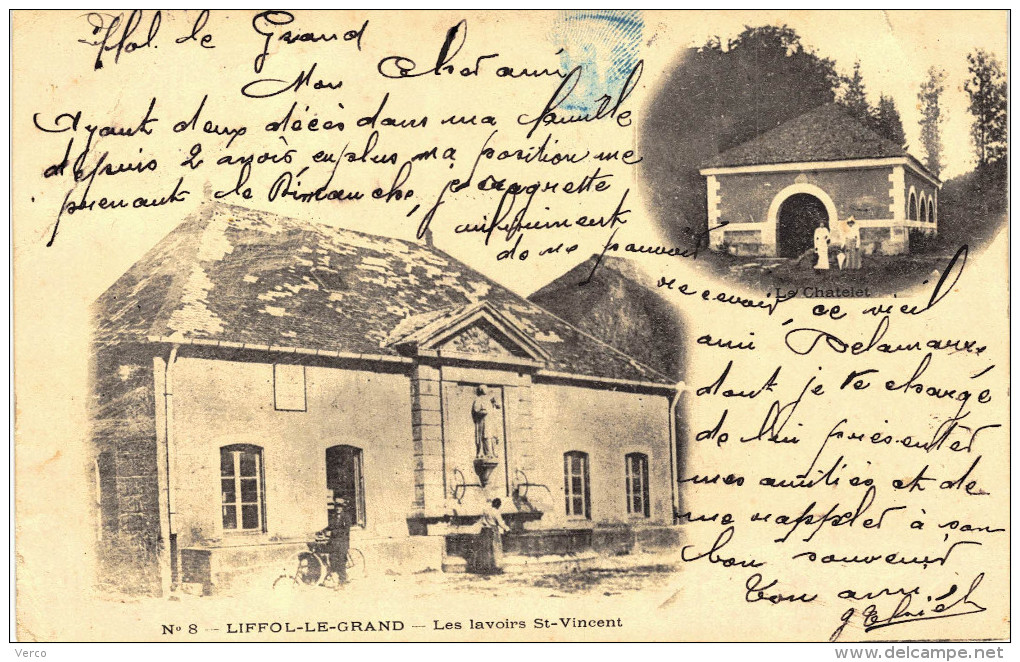 Liffol-le-Grand
Mon Cher ami
Ayant deux décès dans ma famille
depuis 2 mois en plus ma position me
prenant le Dimanche, je regrette
infiniment
de ne pouvoir
recevoir, ce vieil
ami Delamarre,
dont je te charge
de lui présenter
mes amitiés et de
me rappeler à son
bon souvenir
Ton ami
Le Chatelet
No 8 – LIFFOL-LE-GRAND – Les lavoirs St-Vincent
Verco
www.delcampe.net